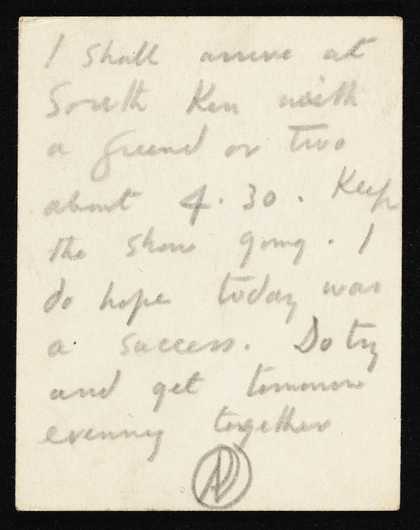 I shall arrive at
South Ken with
a friend or two
about 4.30. Keep
the show going. I
do hope today was
a success. Do try
and get tomorrow
evening together